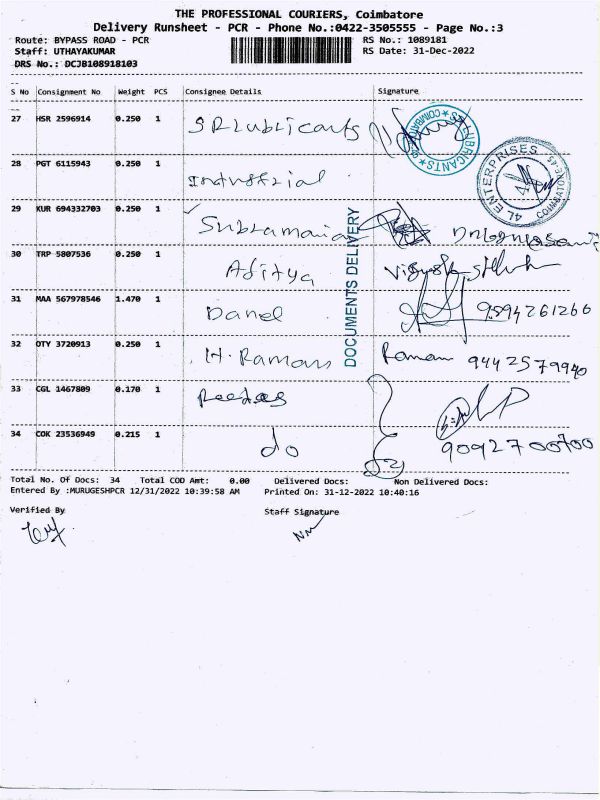 THE PROFESSIONAL COURIERS, Coimbatore
Delivery Runsheet - PCR - Phone No.:0422-3505555 - Page No.:3
Route: BYPASS ROAD - PCR RS No.: 1089181
Staff: UTHAYAKUMAR RS Date: 31-Dec-2022
DRS No.: DCJB108918103
S No Consignment No Weight PCS Consignee Details Signature
27 HSR 2596914 0.250 1 SR Lubricants
LUBRICANTS * COIMBATORE
28 PGT 6115943 0.250 1 Industrial
ENTERPRISES
29 KUR 694332703 0.250 1
30 TRP 5807536 0.250 1 Aditya
31 MAA 567978546 1.470 1 Danel 9894261266
32 OTY 3720913 0.250 1 H. Ramans Raman 9442579940
33 CGL 1467809 0.170 1
34 COK 23536949 0.215 1 do 9092700700
DOCUMENTS DELIVERY
Total No. Of Docs: 34 Total COD Amt: 0.00 Delivered Docs: Non Delivered Docs:
Entered By :MURUGESHPCR 12/31/2022 10:39:58 AM Printed On: 31-12-2022 10:40:16
Verified By Staff Signature